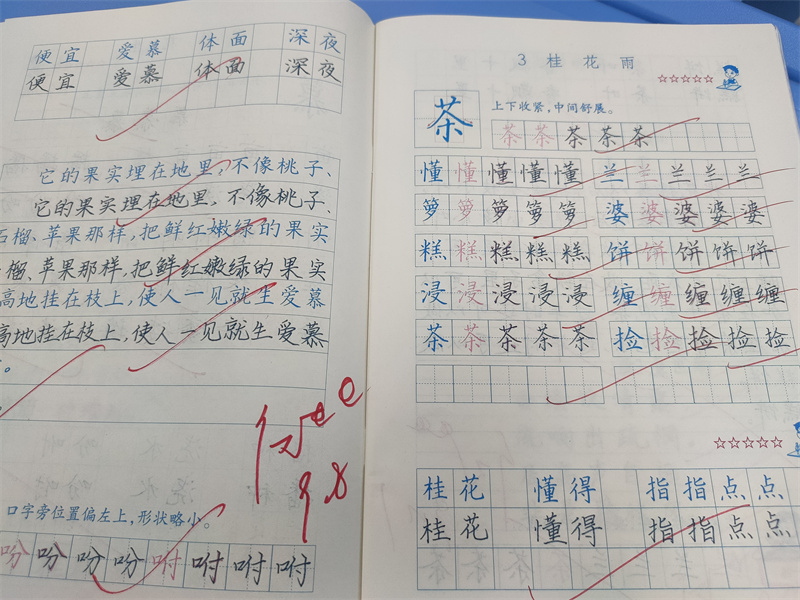 便宜 爱慕 体面 深夜
便宜 爱慕 体面 深夜
它的果实埋在地里,不像桃子、
它的果实埋在地里,不像桃子、
石榴、苹果那样,把鲜红嫩绿的果实
榴、苹果那样,把鲜红嫩绿的果实
高地挂在枝上,使人一见就生爱慕
高地挂在枝上,使人一见就生爱慕
。
口字旁位置偏左上,形状略小。
吩吩吩吩咐咐咐咐
3 桂花雨
☆☆☆☆☆
茶 上下收紧,中间舒展。
茶茶茶茶茶
懂懂懂懂懂 兰兰兰兰兰
箩箩箩箩箩 婆婆婆婆婆
糕糕糕糕糕 饼饼饼饼饼
浸浸浸浸浸 缠缠缠缠缠
茶茶茶茶茶 捡捡捡捡捡
☆☆☆☆☆
桂花 懂得 指指点点
桂花 懂得 指指点点